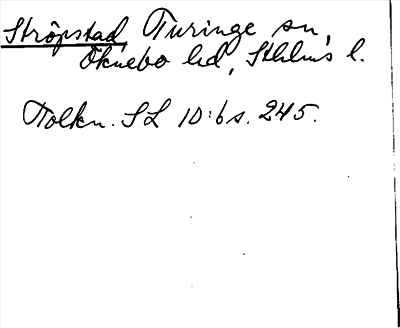 Ströpstad, Turinge sn,
Öknebo hd, Sthlms l.
Tolkn. SL 10:6 s. 245.